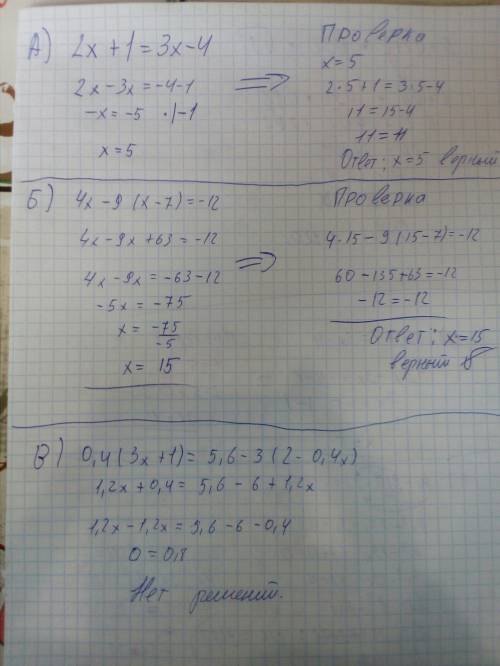 А) 2x+1=3x-4
2x-3x=-4-1
-x=-5 ·|-1
x=5
=>
Проверка
x=5
2·5+1=3·5-4
11=15-4
11=11
Ответ: x=5 верный
Б) 4x-9(x-7)=-12
4x-9x+63=-12
4x-9x=-63-12
-5x=-75
x=-75/-5
x=15
=>
Проверка
4·15-9(15-7)=-12
60-135+63=-12
-12=-12
Ответ: x=15
верный
В) 0,4(3x+1)=5,6-3(2-0,4x)
1,2x+0,4=5,6-6+1,2x
1,2x-1,2x=5,6-6-0,4
0=0,8
Нет решений.